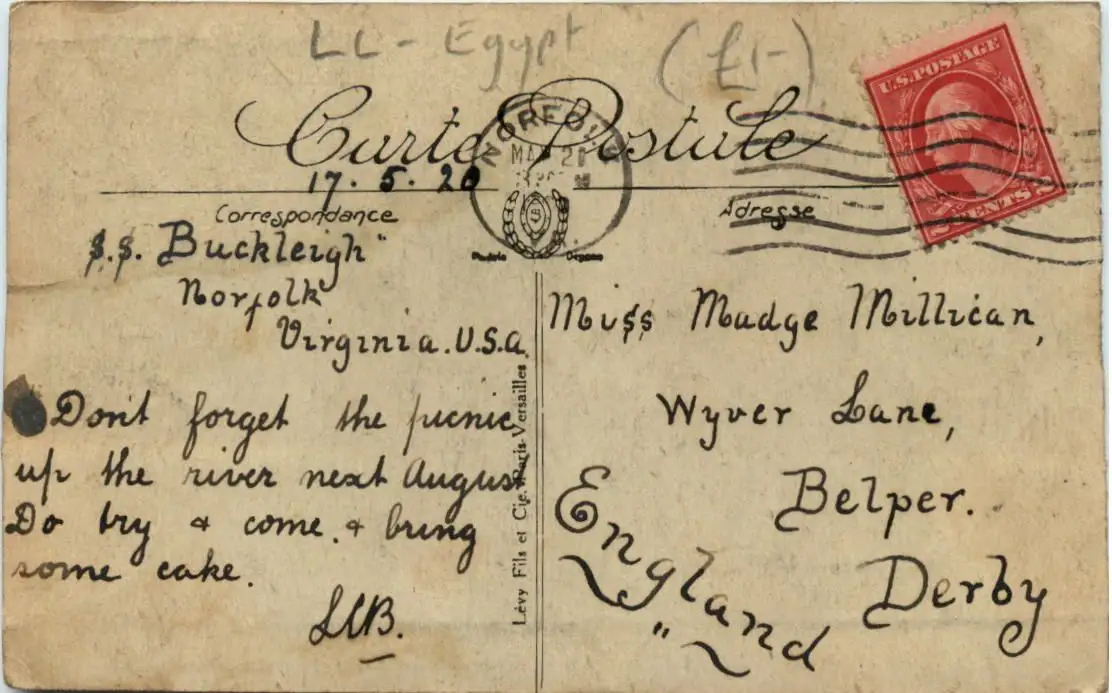 LL - Egypt (£1-)
Carte Postale
NORFOLK
MAY 2
17.5.20
Correspondance
Adresse
U.S. POSTAGE
2 CENTS 2
S.S. Buckleigh"
Norfolk
Virginia. U.S.A.
Don't forget the picnic
up the river next August
Do try & come. & bring
some cake.
LCB.
Lévy Fils et Cie. Paris-Versailles
Miss Madge Millican,
Wyver Lane,
Belper.
Derby
England